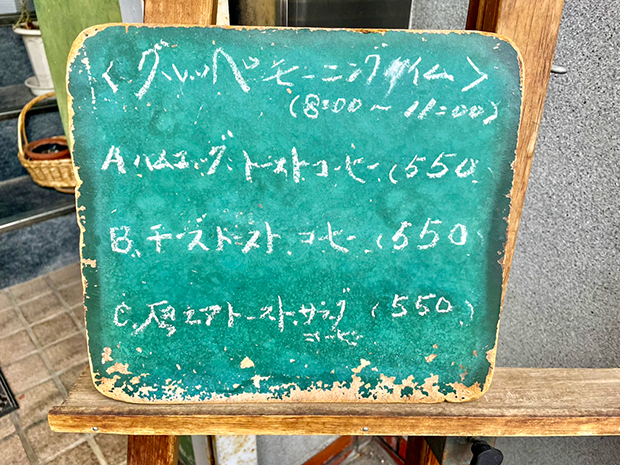 〈グルッペモーニングタイム〉
(8:00〜11:00)
A.ハムエッグ.トースト.コーヒー.(550)
B.チーズトースト.コーヒー.(550)
C.エアトースト.サラダ (550)
コーヒー